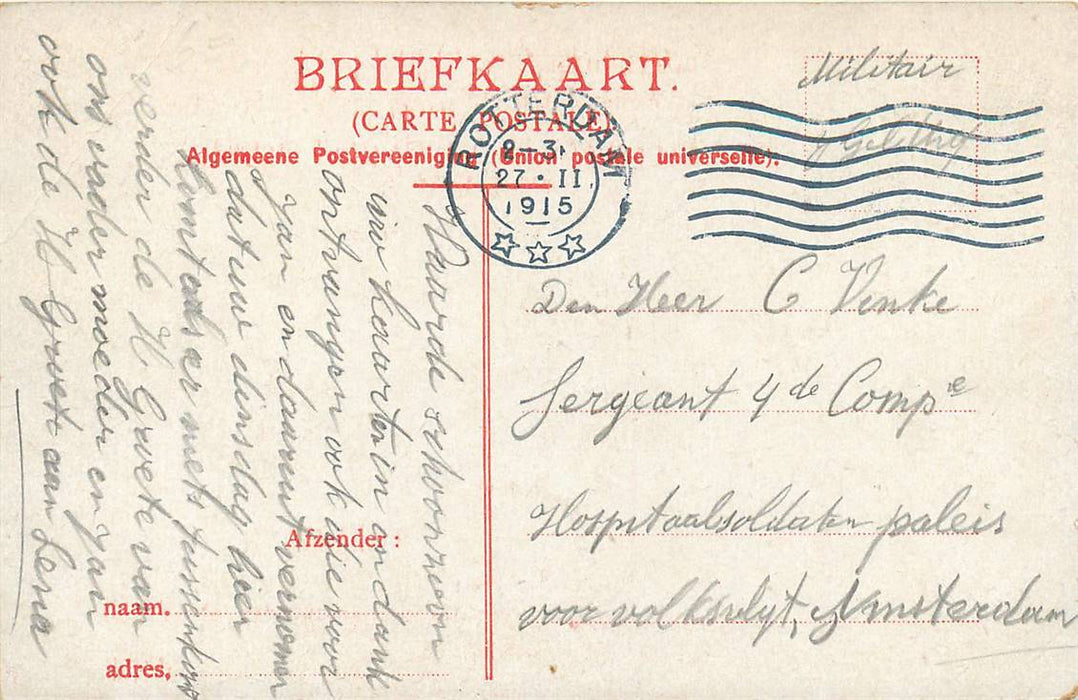 BRIEFKAART.
(CARTE POSTALE)
Algemeene Postvereeniging (Union postale universelle).
ROTTERDAM
8-3
27·II
1915
Militair
Den Heer C Venke
Sergeant 4 de Compie
Hospitaalsoldaten paleis
voor volksvlyt, Amsterdam
Waarde schoonzoon
uw kaarten in dank
ontvangen ook die voor
Jan en daaruit vernomen
dat uw dinsdag hier
komt als er niets tusschenkomt
verder de H Groete van
ons vader moeder en Jan
ook de H Groete aan Lena
Afzender:
naam.
adres,